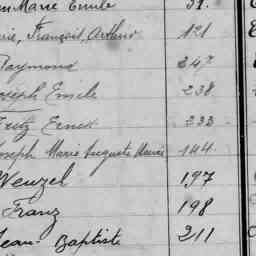 Marie Emile 39.
François, Arthur 121
Raymond 347
Joseph Emile 238
Fritz Ernest 233
Joseph Marie Auguste 144
Wenzel 197
Franz 198
Jean-Baptiste 211